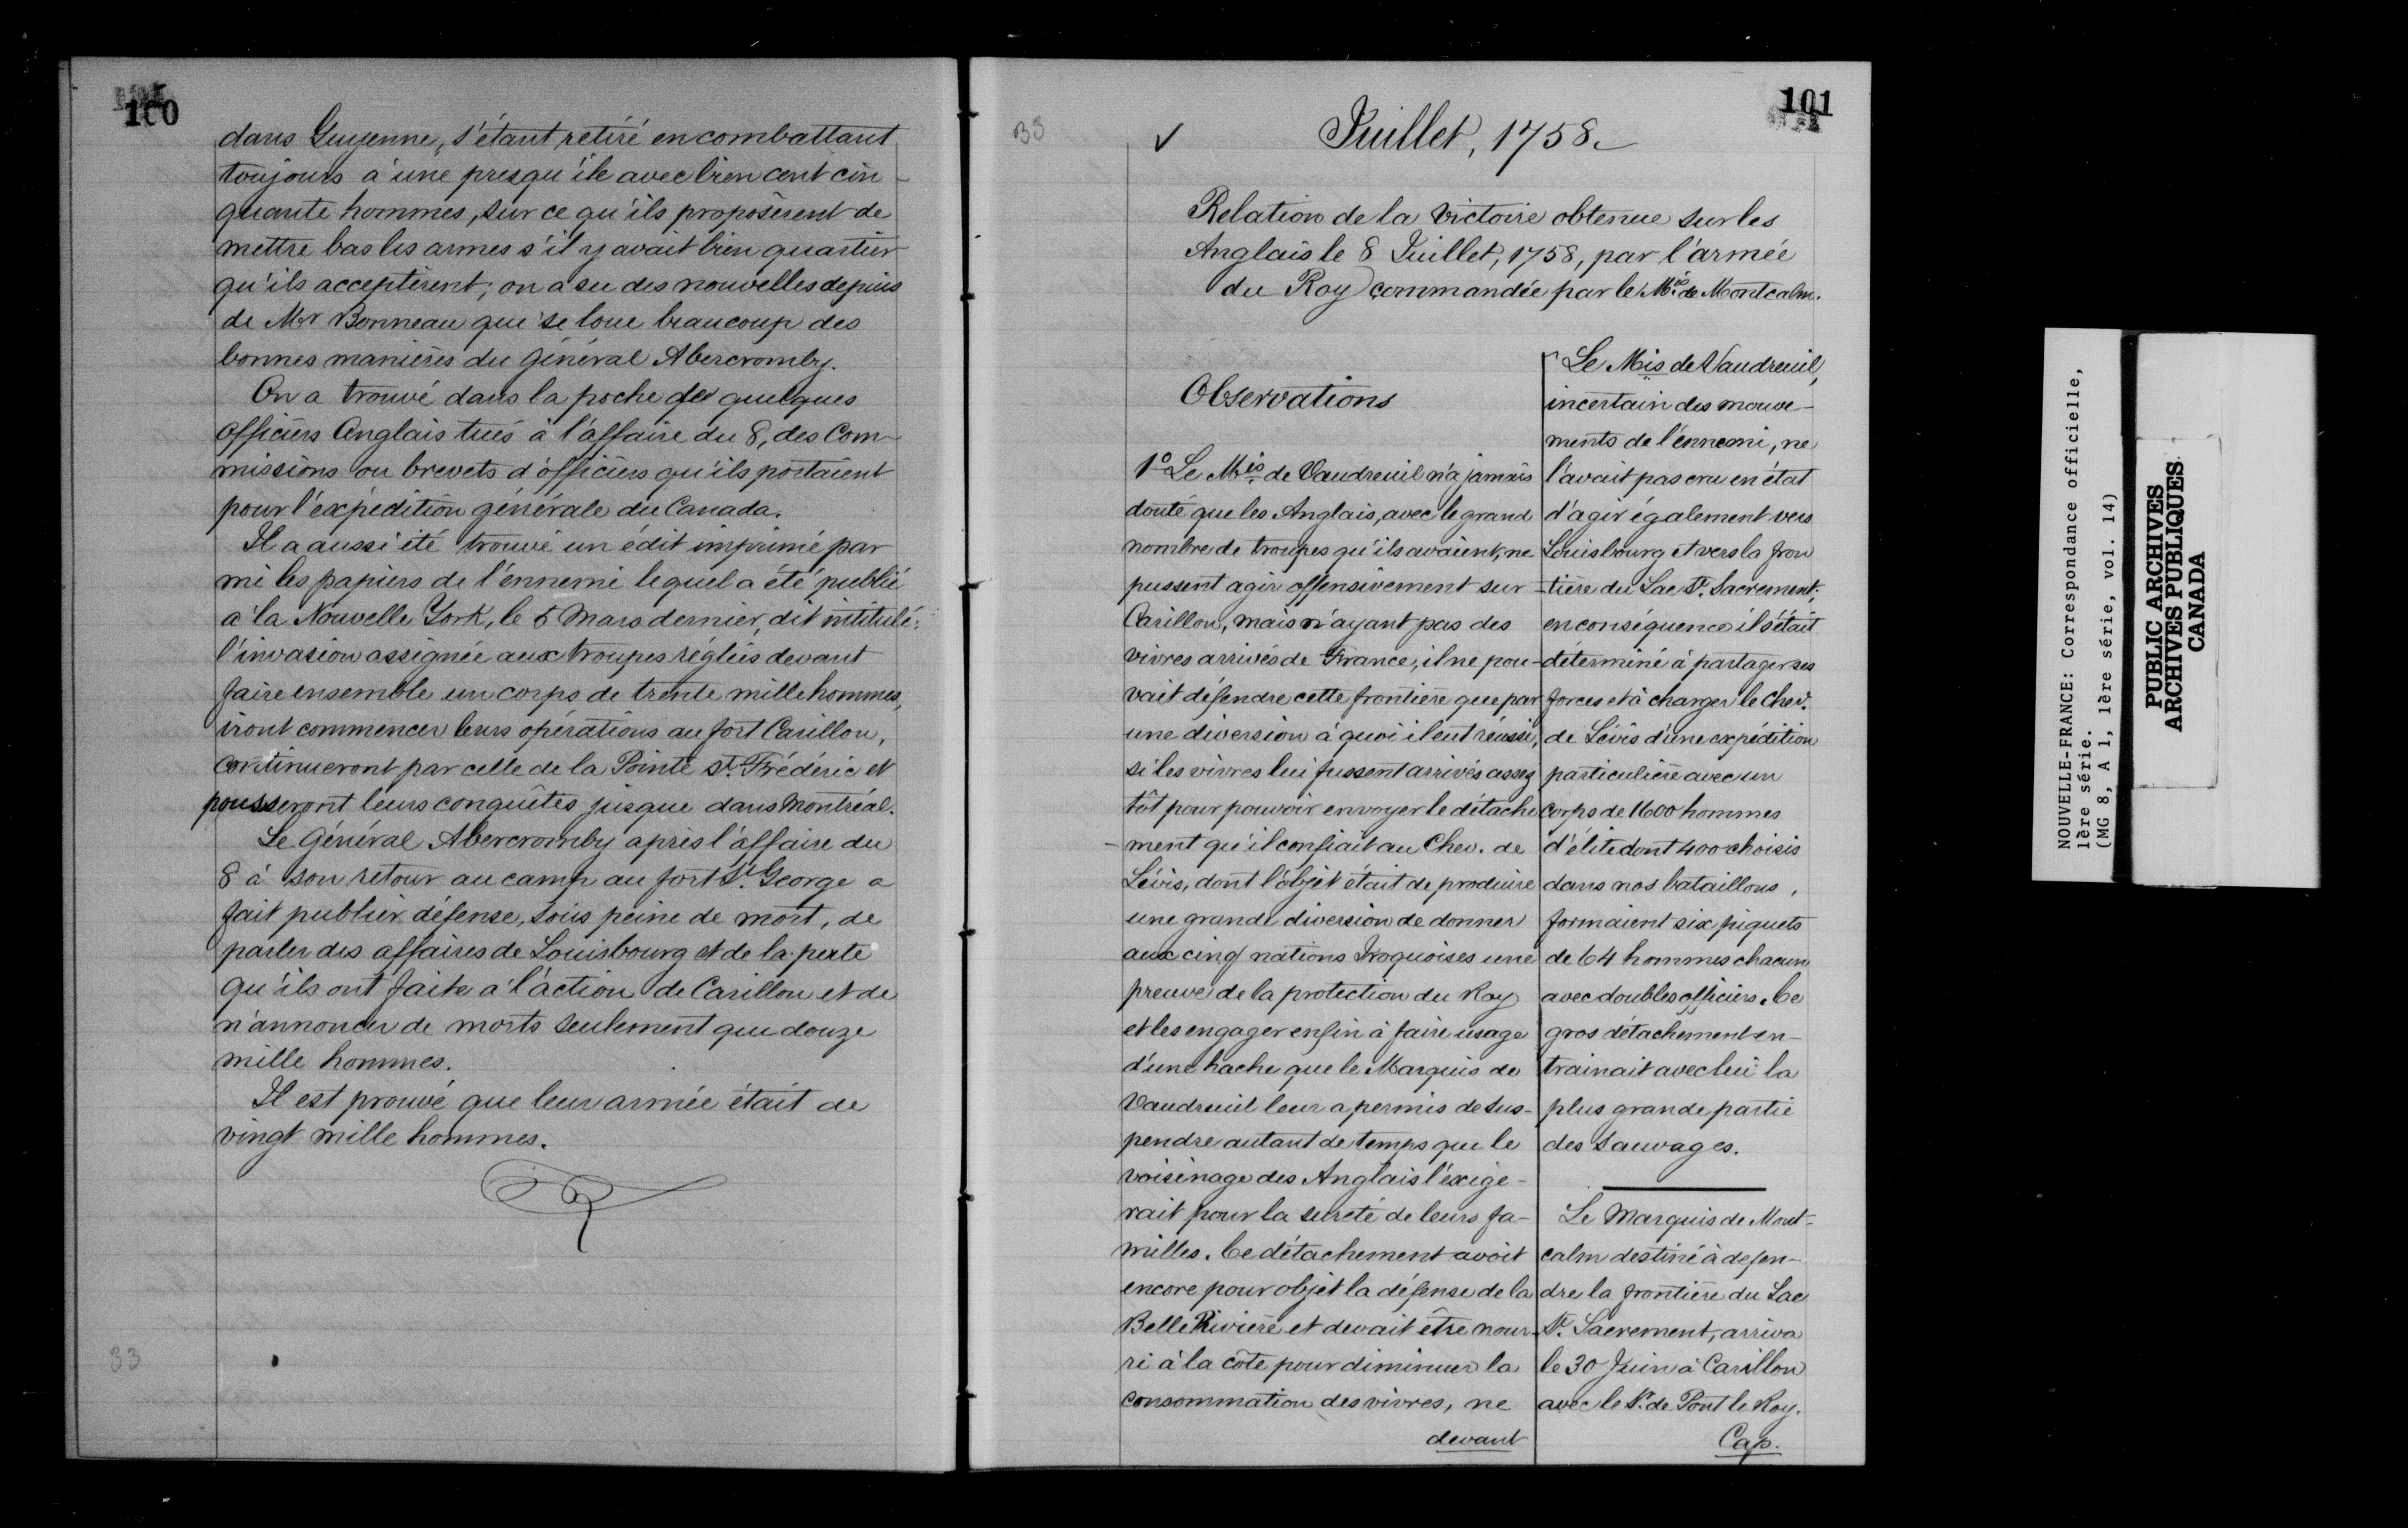 100
dans Guyenne, s'étant retiré en combattant
toujours à une presqu'ile avec bien cent cin-
quante hommes, sur ce qu'ils proposèrent de
mettre bas les armes s'il y avait bien quartier
qu'ils acceptèrent; on a su des nouvelles depuis
de Mr Bonneau qui se loue beaucoup des
bonnes manières du Général Abercromby.
On a trouvé dans la poche de quelques
officiers Anglais tués à l'affaire du 8, des Com-
missions ou brevets d'officiers qu'ils portaient
pour l'expédition générale du Canada.
Il a aussi été trouvé un édit imprimé par
mi les papiers de l'ennemi lequel a été publié
à la Nouvelle York, le 5 Mars dernier, dit intitulé:
l'invasion assignée aux troupes réglées devant
faire ensemble un corps de trente mille hommes,
iront commencer leurs opérations au fort Carillon,
continueront par celle de la Pointe St. Frédéric et
pousseront leurs conquêtes jusque dans Montréal.
Le Général Abercromby après l'affaire du
8 à son retour au camp au fort St. George a
fait publier défense, sous peine de mort, de
parler des affaires de Louisbourg et de la perte
qu'ils ont faite à l'action de Carillon et de
n'annoncer de morts seulement que douze
mille hommes.
Il est prouvé que leur armée était de
vingt mille hommes.
33
33
101
Juillet, 1758.
Relation de la victoire obtenue sur les
Anglais le 8 Juillet, 1758, par l'armée
du Roy commandée par le Mis. de Montcalm.
Observations
1º Le Mis. de Vaudreuil n'a jamais
douté que les Anglais, avec le grand
nombre de troupes qu'ils avaient, ne
pussent agir offensivement sur
Carillon, mais n'ayant pas des
vivres arrivés de France, il ne pou-
vait défendre cette frontière que par
une diversion à quoi il eut réussi,
si les vivres lui fussent arrivés assez
tôt pour pouvoir envoyer le détache
-ment qu'il confiait au Chev. de
Lévis, dont l'objet était de produire
une grande diversion de donner
aux cinq nations Iroquoises une
preuve de la protection du Roy
et les engager enfin à faire usage
d'une hache que le Marquis de
Vaudreuil leur a permis de sus-
pendre autant de temps que le
voisinage des Anglais l'exige-
rait pour la sureté de leurs fa-
milles. Ce détachement avoit
encore pour objet la défense de la
Belle Rivière et devait être nour-
ri à la côte pour diminuer la
consommation des vivres, ne
devant
Le Mis de Vaudreuil,
incertain des mouve-
ments de l'ennemi, ne
l'avait pas cru en état
d'agir également vers
Louisbourg et vers la fron
-tière du Lac St. Sacrement;
en conséquence il s'était
determiné à partager ses
forces et à charger le Chev.
de Lévis d'une expédition
particulière avec un
corps de 1600 hommes
d'élite dont 400 choisis
dans nos bataillons,
formaient six piquets
de 64 hommes chacun
avec doubles officiers. Ce
gros détachement en-
trainait avec lui la
plus grande partie
des sauvages.
Le Marquis de Mont-
calm destiné à defen-
dre la frontière du Lac
St. Sacrement, arriva
le 30 Juin à Carillon
avec le Sr. de Pont le Roy.
Cap.
NOUVELLE-FRANCE: Correspondance officielle,
1ère série.
(MG 8, A 1, 1ère série, vol. 14)
PUBLIC ARCHIVES
ARCHIVES PUBLIQUES
CANADA